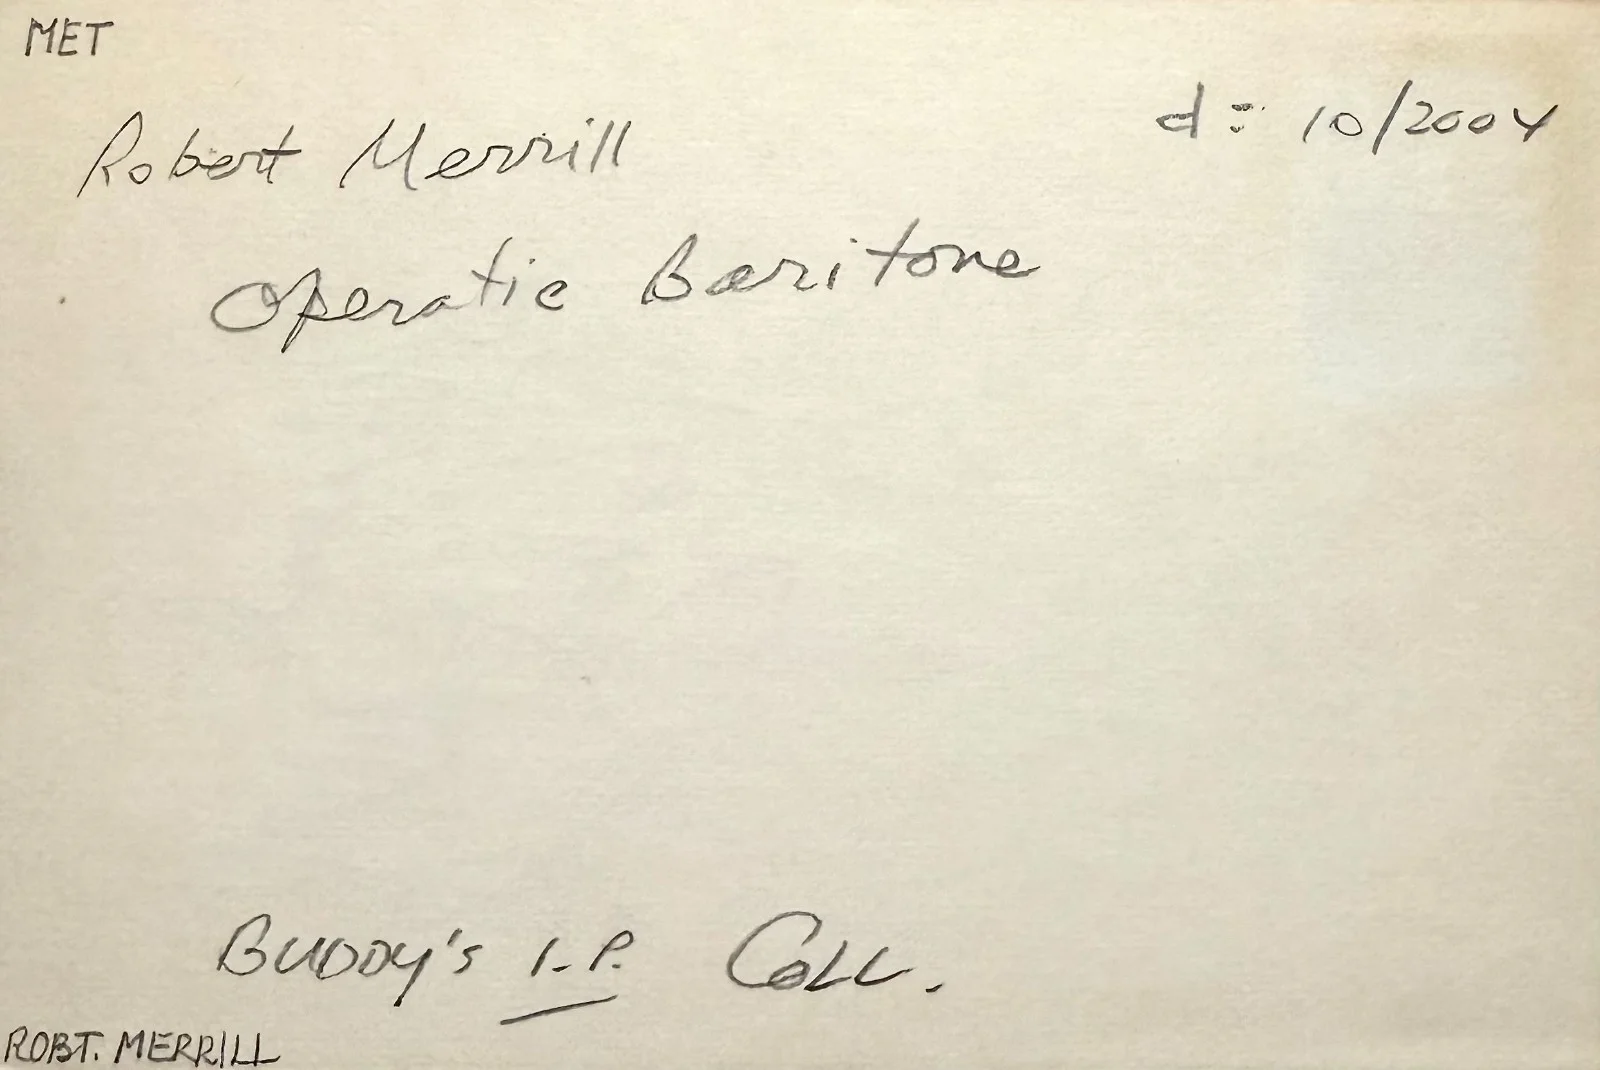 MET
Robert Merrill
d: 10/2004
Operatic Baritone
BUDDY's I.P. COLL.
ROBT. MERRILL